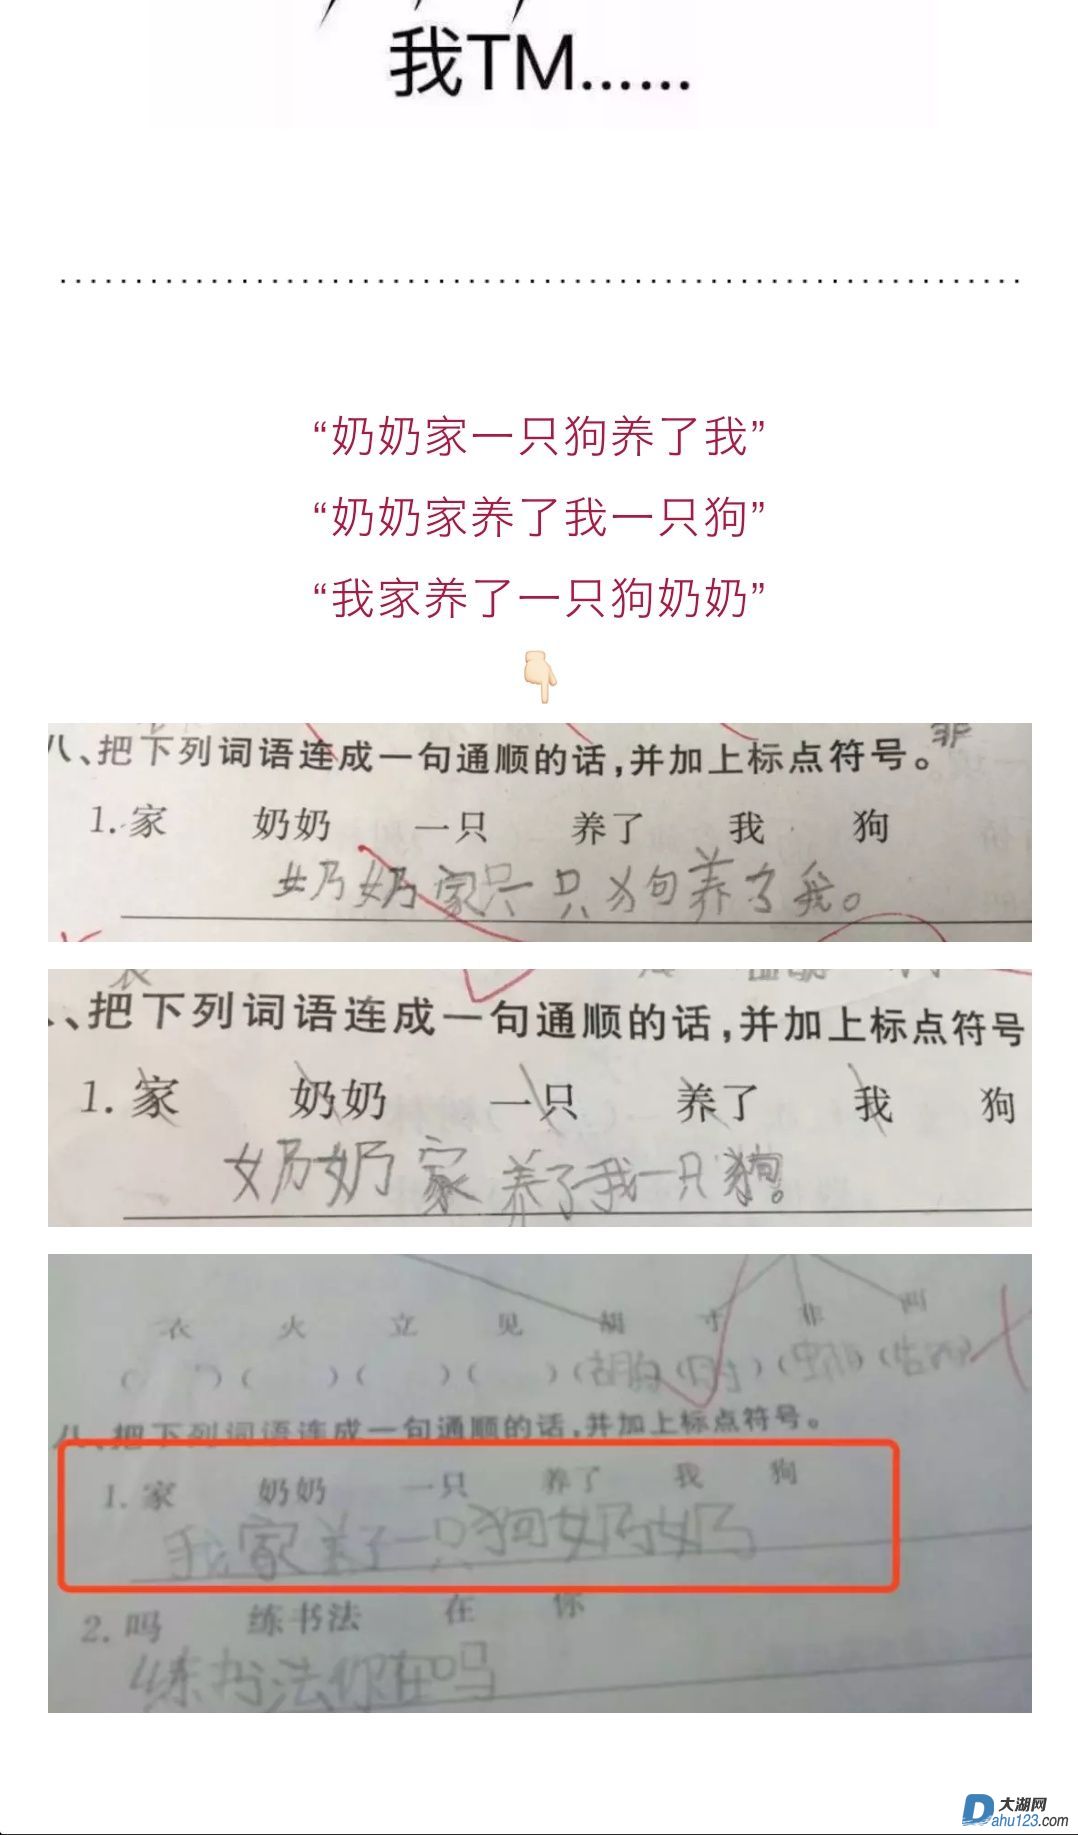 我TM……
“奶奶家一只狗养了我”
“奶奶家养了我一只狗”
“我家养了一只狗奶奶”
八、把下列词语连成一句通顺的话,并加上标点符号。
1. 家 奶奶 一只 养了 我 狗
奶奶家一只狗养了我。
、把下列词语连成一句通顺的话,并加上标点符号
1. 家 奶奶 一只 养了 我 狗
奶奶家养了我一只狗。
衣 火 立 见 胡 寸 非 叫
( )( )( )( )(胡
八、把下列词语连成一句通顺的话,并加上标点符号。
1. 家 奶奶 一只 养了 我 狗
我家养了一只狗奶奶
2. 吗 练书法 在 你
练书法你在吗
大湖网
Dahu123.com